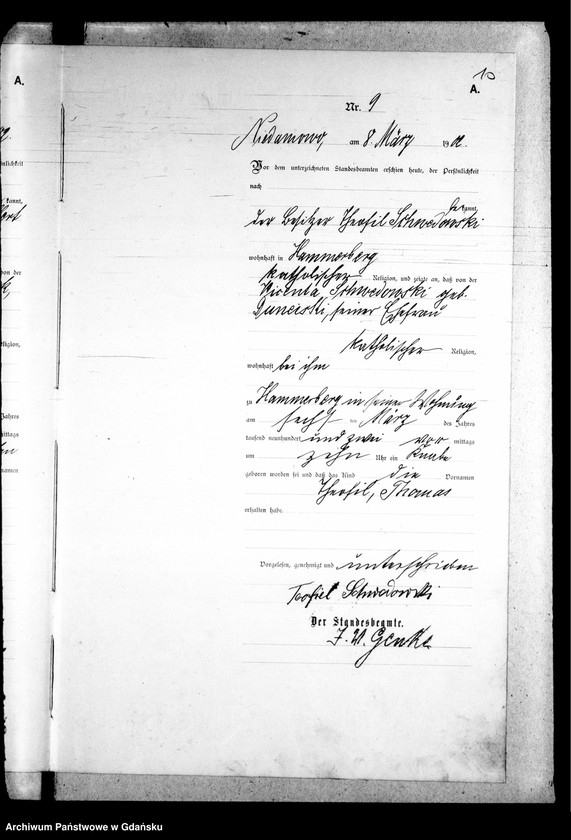 A.
10
A.
Nr. 9
Niedamowo, am 8. März 1902.
Vor dem unterzeichneten Standesbeamten erschien heute, der Persönlichkeit
nach
bekannt,
der Besitzer Theofil Schwedowski
wohnhaft in Hammerberg
katholischer Religion, und zeigte an, daß von der
Schwedowski geb.
seiner Ehefrau
katholischer Religion,
wohnhaft bei ihm
zu Hammerberg in seiner Wohnung
am sechs ten März des Jahres
tausend neunhundert und zwei vor mittags
um zehn Uhr ein Knabe
geboren worden sei und daß das Kind die Vornamen
Theofil, Thomas
erhalten habe.
Vorgelesen, genehmigt und unterschrieben
Teofiel Schwedowski
Der Standesbeamte.
Archiwum Państwowe w Gdańsku